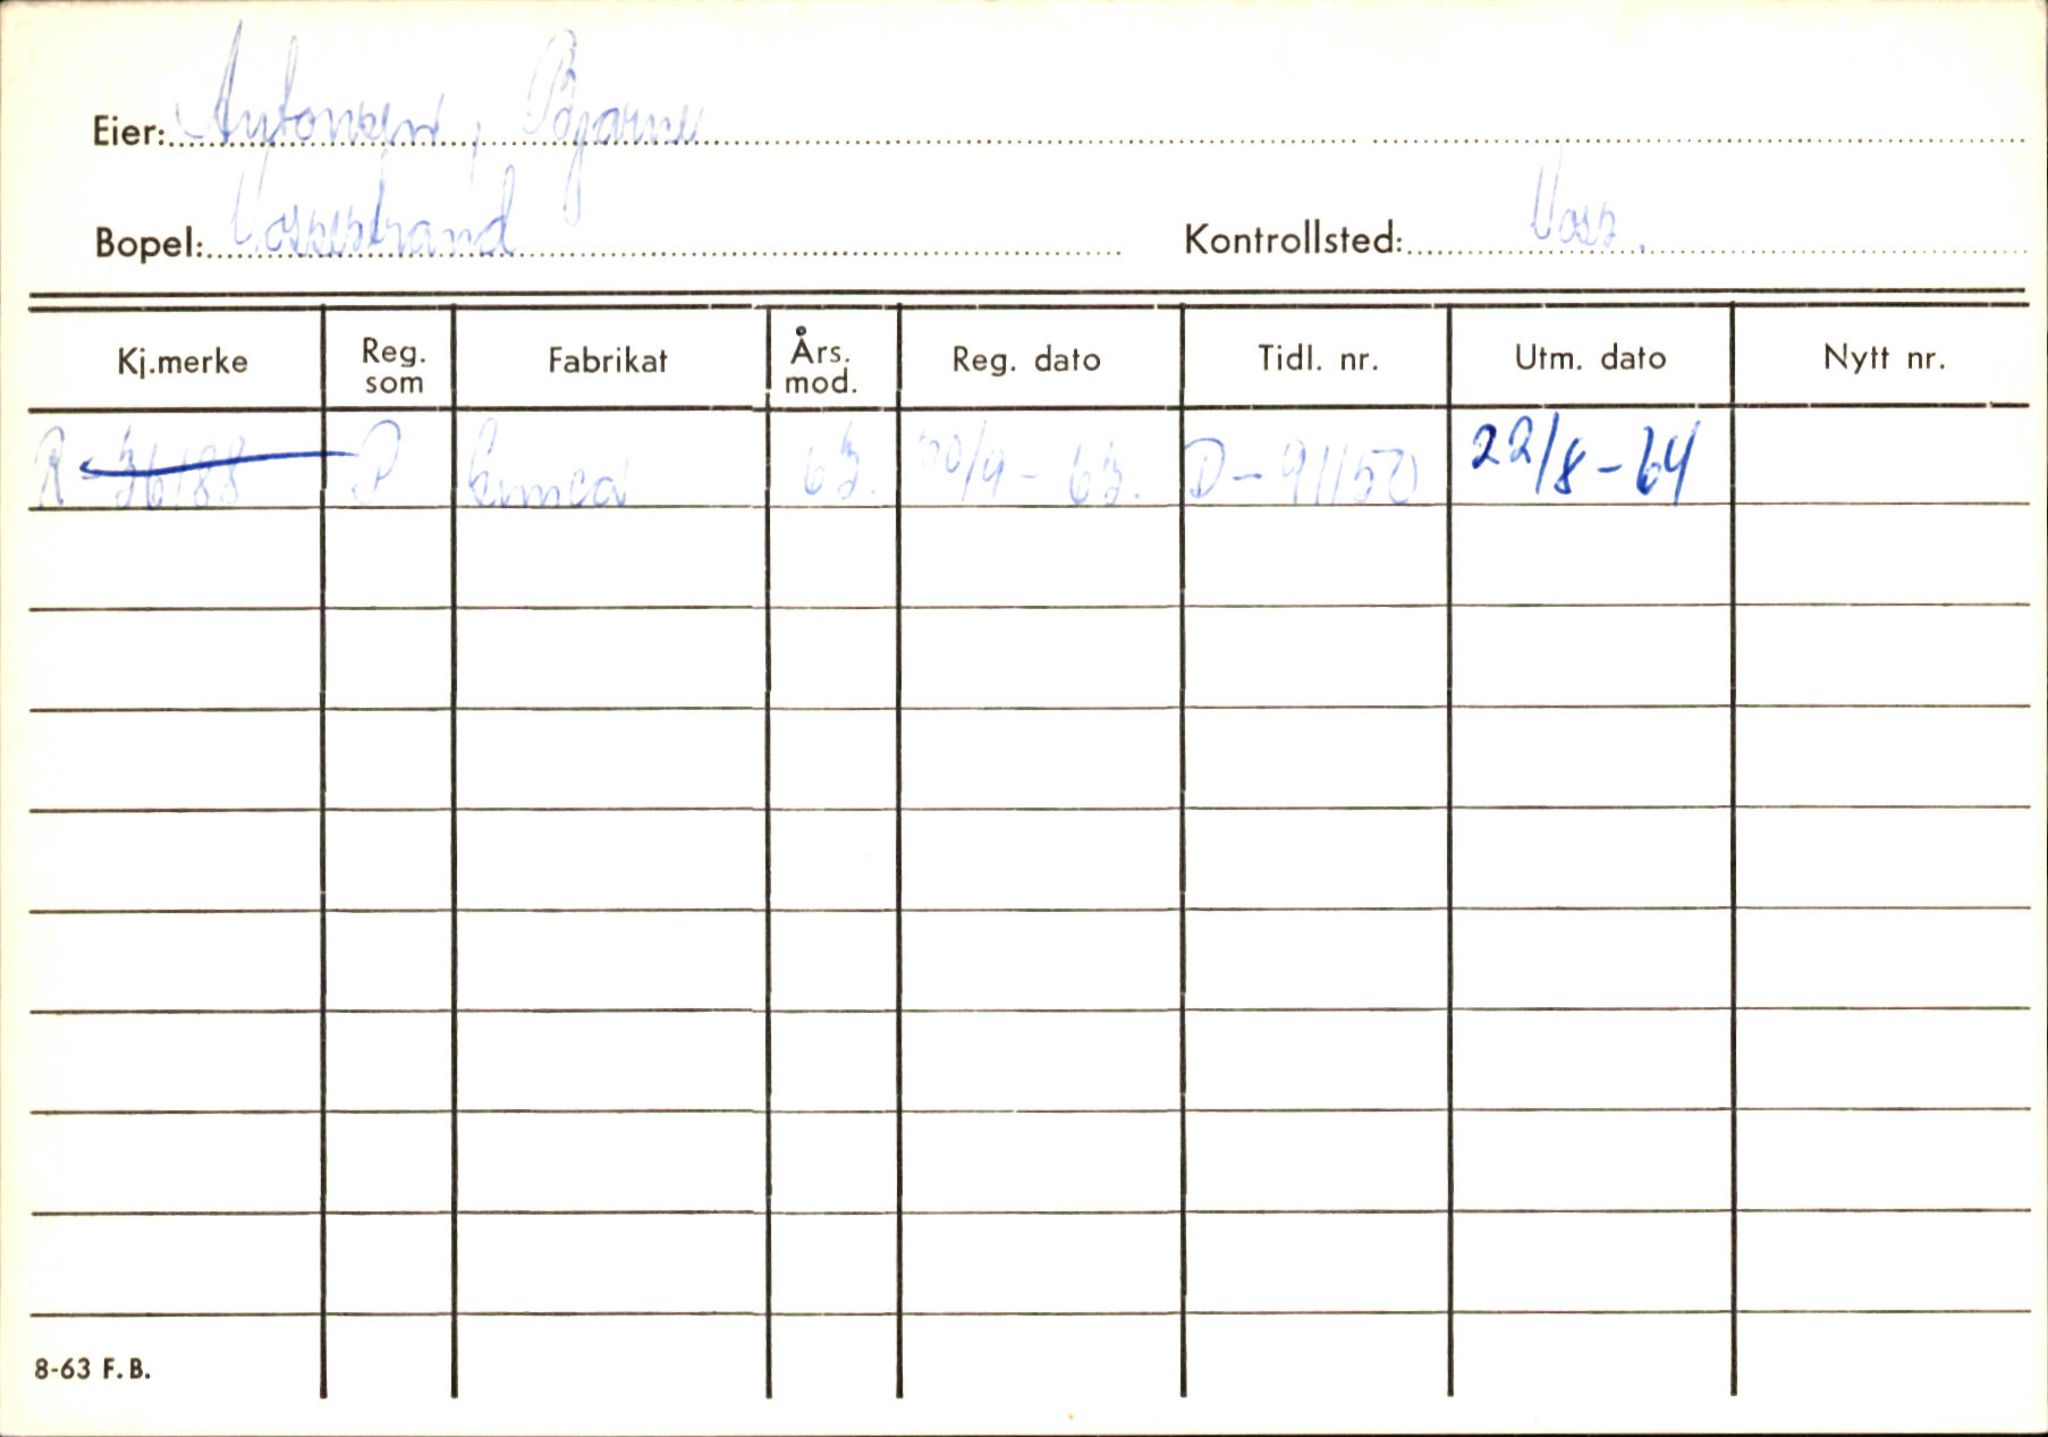 Eier: Antonsen, Bjarne
Bopel: Vossestrand Kontrollsted: Voss.
Kj.merke Reg. som Fabrikat Års. mod. Reg. dato Tidl. nr. Utm. dato Nytt nr.
R-36188 P Simca 63. 30/9-63. D-91150 22/8-64
8-63 F.B.